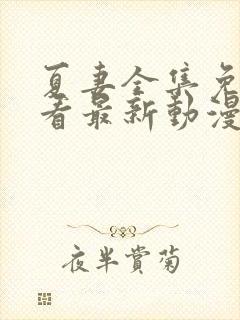 夏妻全集免
看最新動漫
夜半賞菊